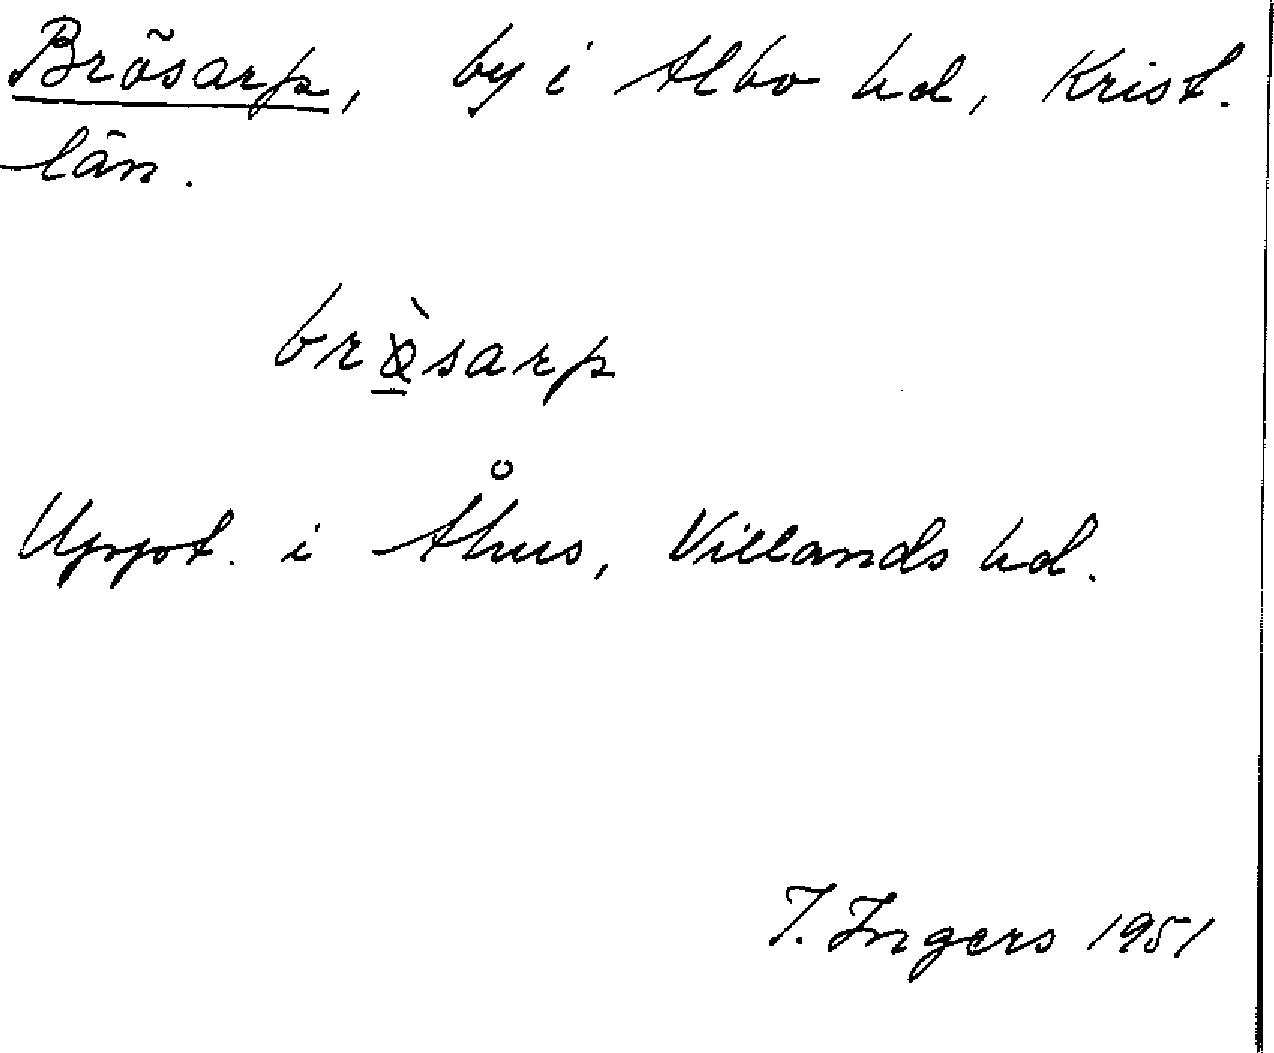 Brösarp, by i Albo hd, Krist.
län.
brø̀sarp
Uppt. i Åhus, Villands hd.
I. Ingers 1951